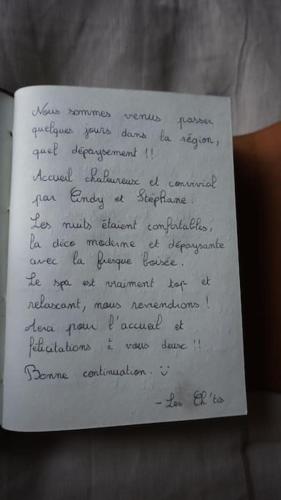 Nous sommes venus passer
quelques jours dans la région,
quel dépaysement !!
Accueil chaleureux et convivial
par Cindy et Stéphane.
Les nuits étaient confortables,
la déco moderne et dépaysante
avec la fresque boisée.
Le spa est vraiment top et
relaxant, nous reviendrons !
Merci pour l'accueil et
félicitations à vous deux !!
Bonne continuation. ☺
- Les Ch'tis